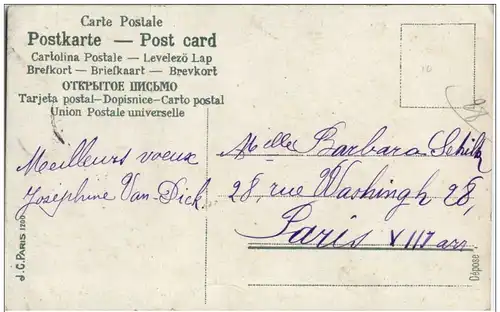 Carte Postale
Postkarte — Post card
Cartolina Postale — Levelező Lap
Brefkort — Briefkaart — Brevkort
ОТКРЫТОЕ ПИСЬМО
Tarjeta postal—Dopisnice—Carto postal
Union Postale universelle
Meilleurs voeux
Joséphine Van-Dick
Melle Barbara
28, rue Washingh 28,
Paris VIII arr
J.C. PARIS 1200
Déposé